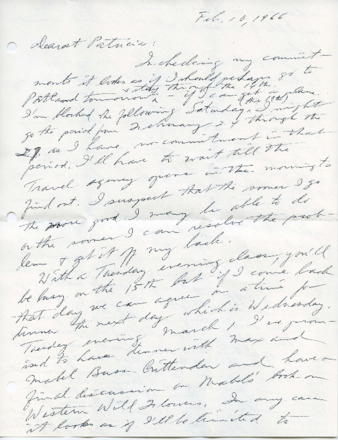 Feb. 10, 1966
Dearest Patricia:
In checking my commit-
ments it looks as if I should perhaps go to
Portland tomorrow & stay through the 18th if I can get a plane.
I'm blocked the following Saturday (the 19th). I might
go the period from February 22 through the
27 as I have no commitment in that
period. I'll have to wait till the
Travel agency opens in the morning to
find out. I suspect that the sooner I go
the more good I may be able to do
or the sooner I can resolve the prob-
lem & get it off my back.
With a Tuesday evening class, you'll
be busy on the 15th but if I come back
that day we can agree on a time for
dinner the next day which is Wednesday.
Tuesday evening, March 1 I've prom-
ised to have dinner with Max and
Mabel Buss Crittenden and have a
final discussion on Mabel's book on
Western Wild Flowers. In any case
it looks as if I'll be limited to